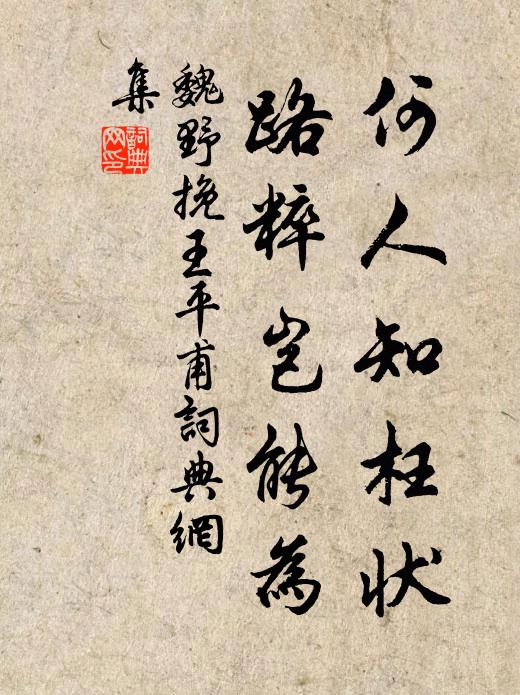 何人知枉状
路粹岂能為
魏野挽王平甫詞典網
集
詞典
网印